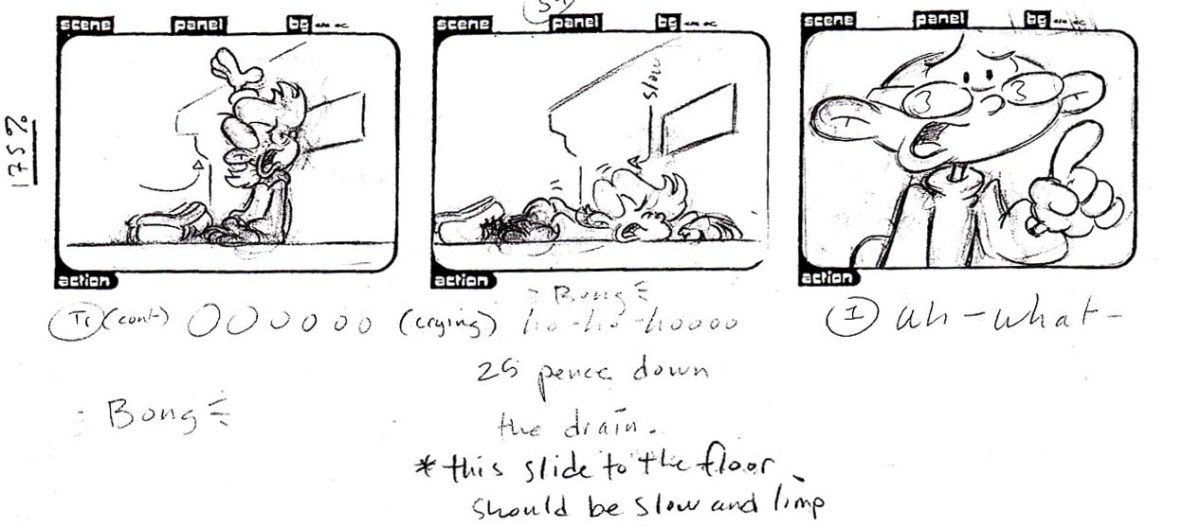 scene panel bg
scene panel bg
scene panel bg
175%
slow
action
action
action
Bong
(cont) OOOOOO (crying) ho-ho-hoooo
I uh-what-
25 pence down
Bong
the drain.
*this slide to the floor
should be slow and limp